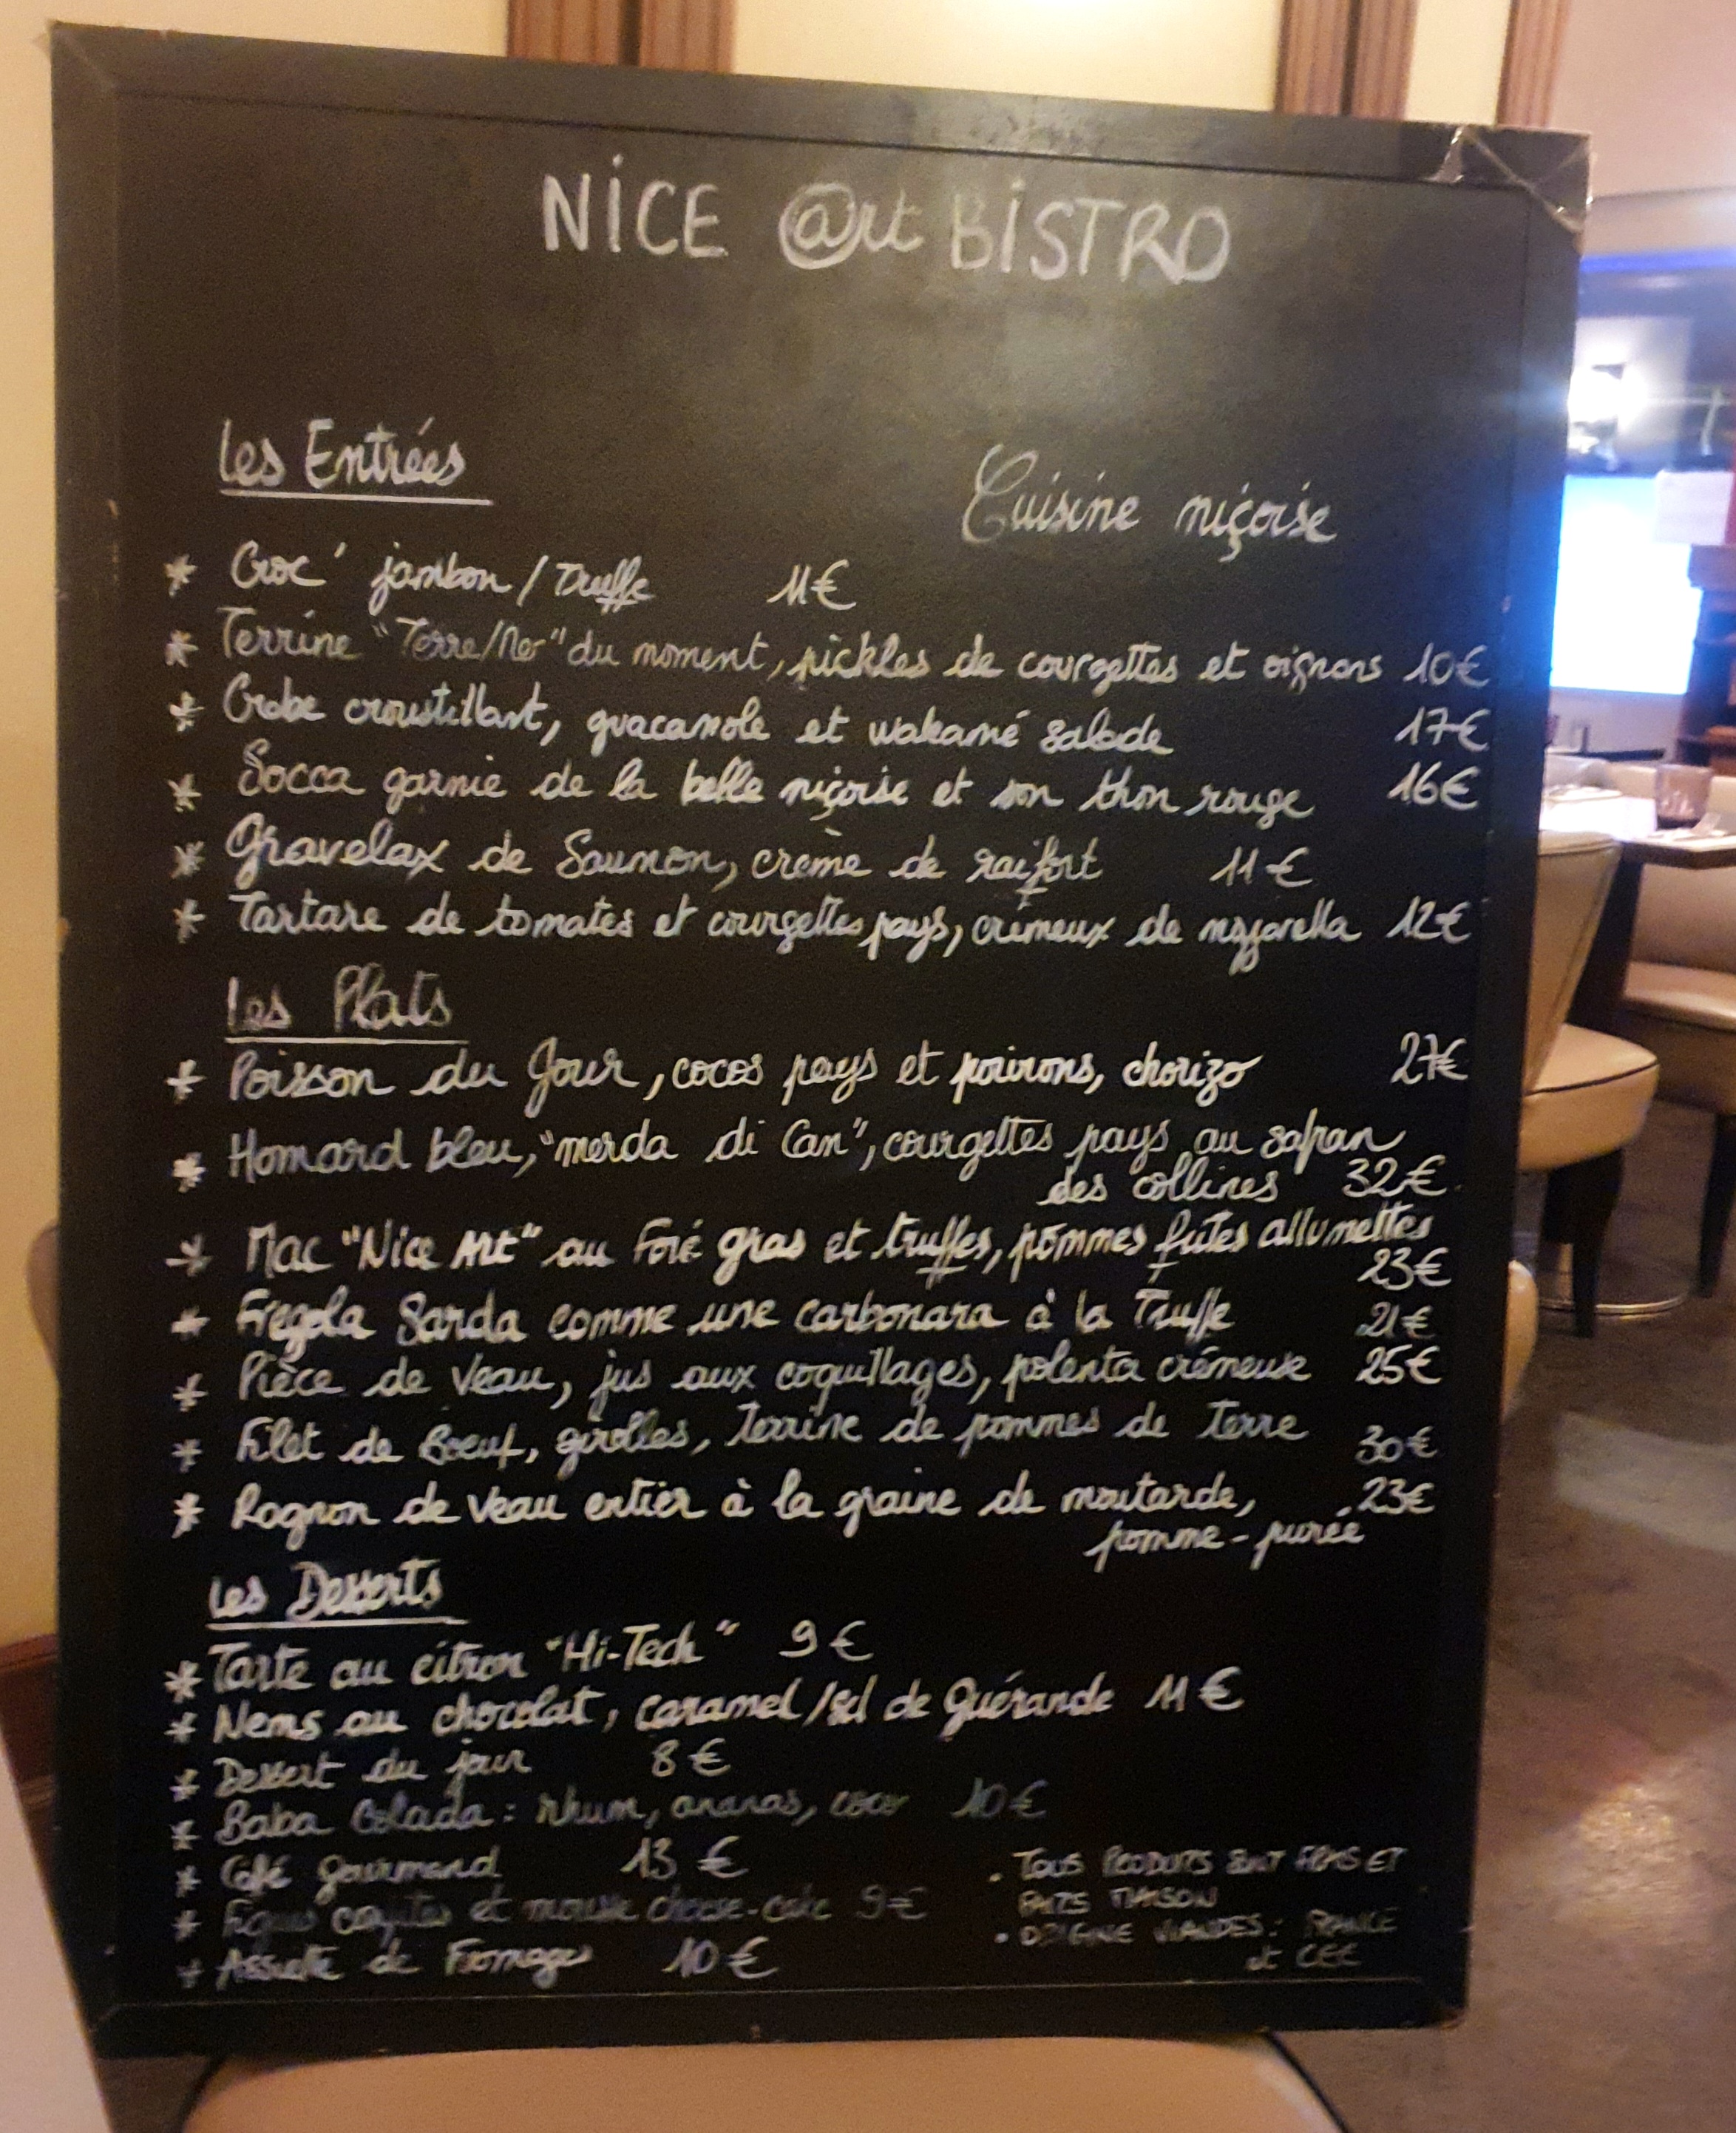 NICE @rt BISTRO
Les Entrées
Cuisine niçoise
* Croc' jambon / Truffe 11€
* Terrine "Terre/Mer" du moment, pickles de courgettes et oignons 10€
* Crabe croustillant, guacamole et wakamé salade 17€
* Socca garnie de la belle niçoise et son thon rouge 16€
* Gravelax de Saumon, crème de raifort 11€
* Tartare de tomates et courgettes pays, crémeux de mozzarella 12€
Les Plats
* Poisson du Jour, cocos pays et poivrons, chorizo 27€
* Homard bleu, "merda di Can", courgettes pays au safran
des collines 32€
* Mac "Nice Art" au Foié gras et truffes, pommes frites allumettes
23€
* Fregola Sarda comme une carbonara à la Truffe 21€
* Pièce de Veau, jus aux coquillages, polenta crémeuse 25€
* Filet de Boeuf, girolles, Terrine de pommes de Terre 30€
* Rognon de Veau entier à la graine de moutarde, 23€
pomme-purée
Les Desserts
* Tarte au citron "Hi-Tech" 9€
* Nems au chocolat, caramel/sel de Guérande 11€
* Dessert du jour 8€
* Baba Colada : rhum, ananas, coco 10€
* Café gourmand 13€
* Figues confites et mousse cheese-cake 9€
* Assiette de Fromages 10€
• TOUS PRODUITS SONT FRAIS ET
FAITS MAISON
• ORIGINE VIANDES : FRANCE
et CEE